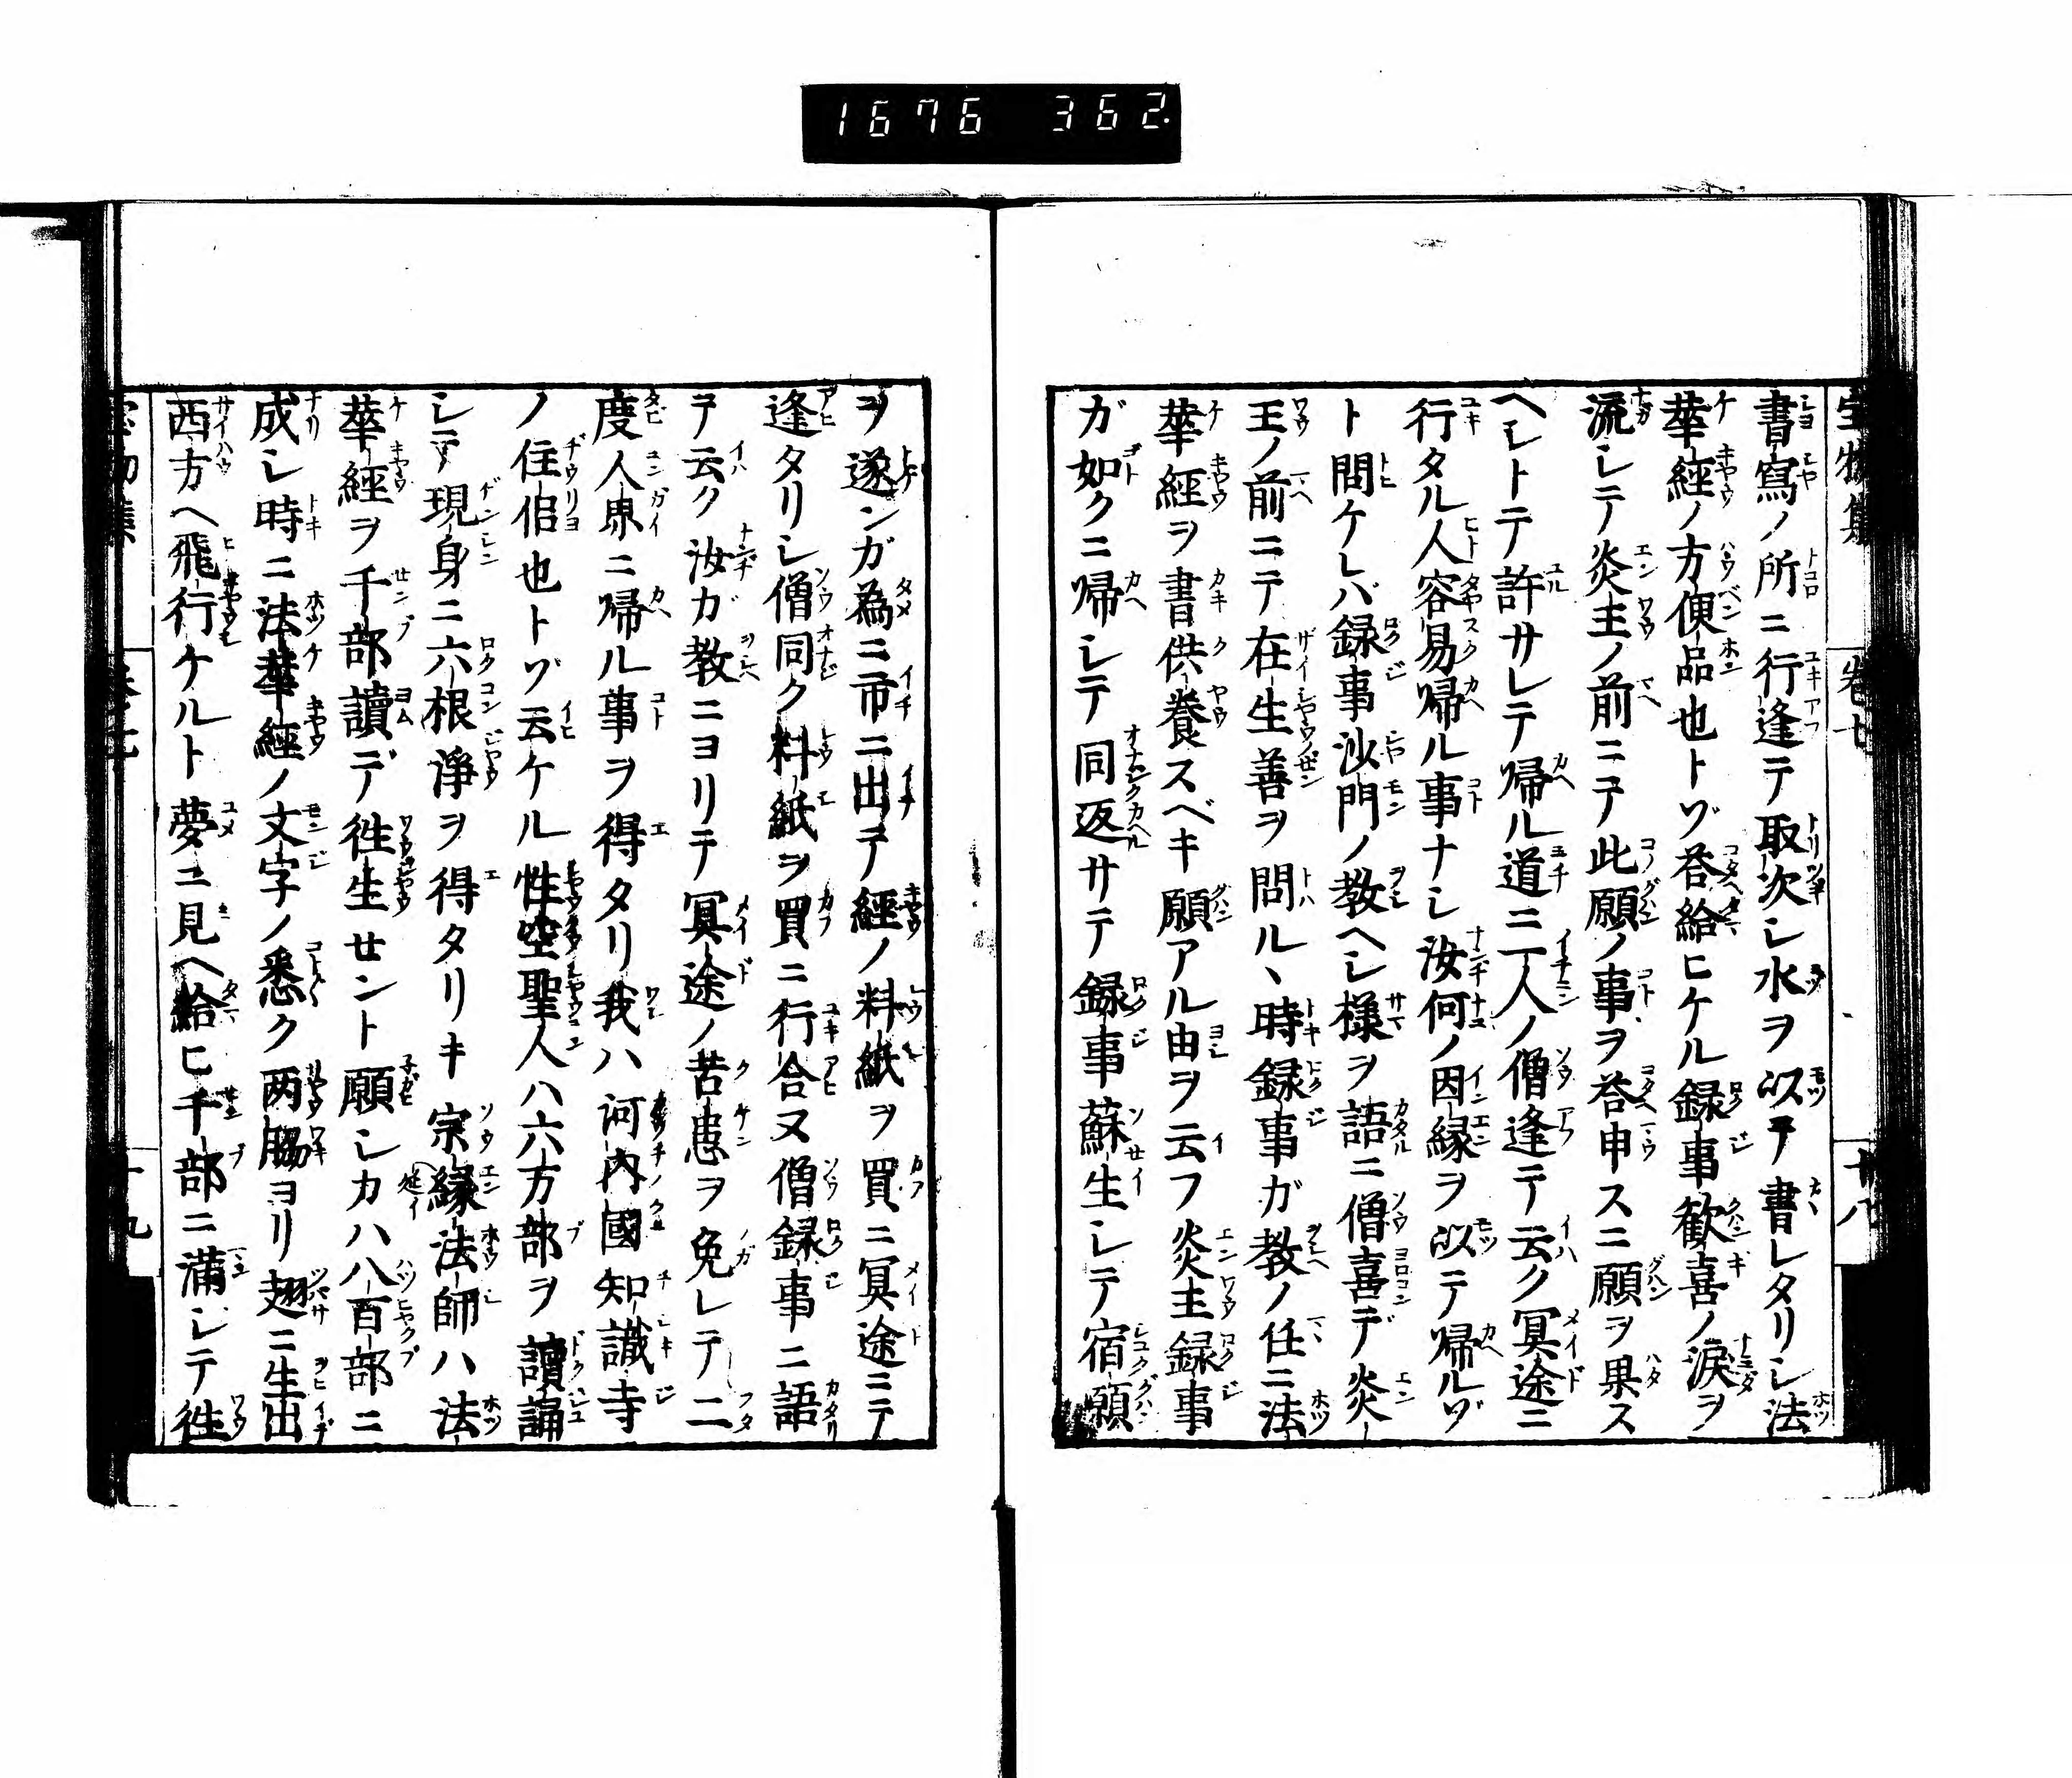 1676 362.
書寫ノ所ニ行逢テ取次シ水ヲ以テ書レタリシ法
華經ノ方便品也トゾ荅給ヒケル録事歓喜ノ涙ヲ
流シテ炎王ノ前ニテ此願ノ事ヲ荅申スニ願ヲ果ス
ヘシトテ許サレテ帰ル道ニ一人ノ僧逢テ云ク冥途ニ
行タル人容易帰ル事ナシ汝何ノ因縁ヲ以テ帰ルゾ
ト問ケレバ録事沙門ノ教ヘシ様ヲ語ニ僧喜デ炎
王ノ前ニテ在生善ヲ問ル丶時録事ガ教ノ任ニ法
華經ヲ書供養スベキ願アル由ヲ云フ炎王録事
ガ如クニ帰シテ同返サテ録事蘇生シテ宿願
ヲ遂ンガ為ニ市ニ出テ經ノ料紙ヲ買ニ冥途ニテ
逢タリシ僧同ク料紙ヲ買ニ行合又僧録事ニ語
テ云ク汝ガ教ニヨリテ冥途ノ苦患ヲ免レテ二
度人界ニ帰ル事ヲ得タリ我ハ河内國知識寺
ノ住侶也トゾ云ケル性空聖人ハ六万部ヲ讀誦
シテ現身ニ六根淨ヲ得タリキ宗縁法師ハ法
華經ヲ千部讀デ徃生せント願シカハ八百部ニ
成シ時ニ法華經ノ文字ノ悉ク两脇ヨリ翅ニ生出
西方ヘ飛行ケルト夢ニ見ヘ給ヒ千部ニ満シテ徃